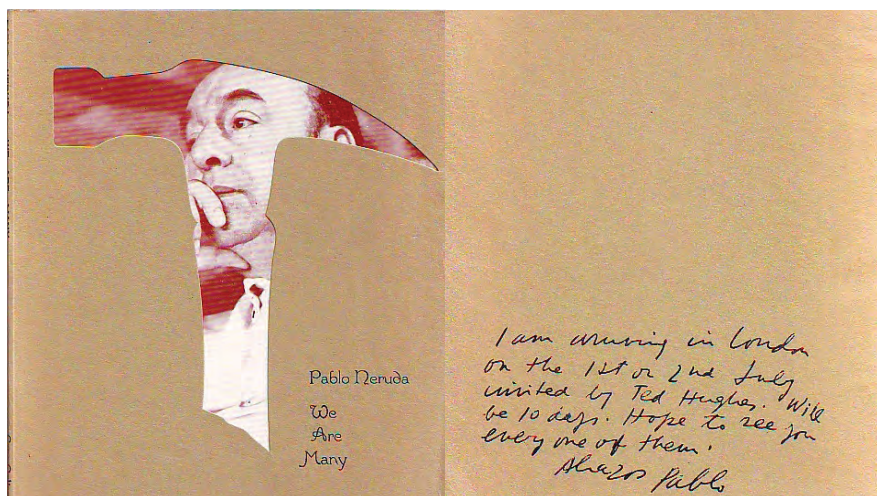 Pablo Neruda
We
Are
Many
I am arriving in London
on the 1st or 2nd July
invited by Ted Hughes. Will
be 10 days. Hope to see you
every one of them.
Abazos Pablo